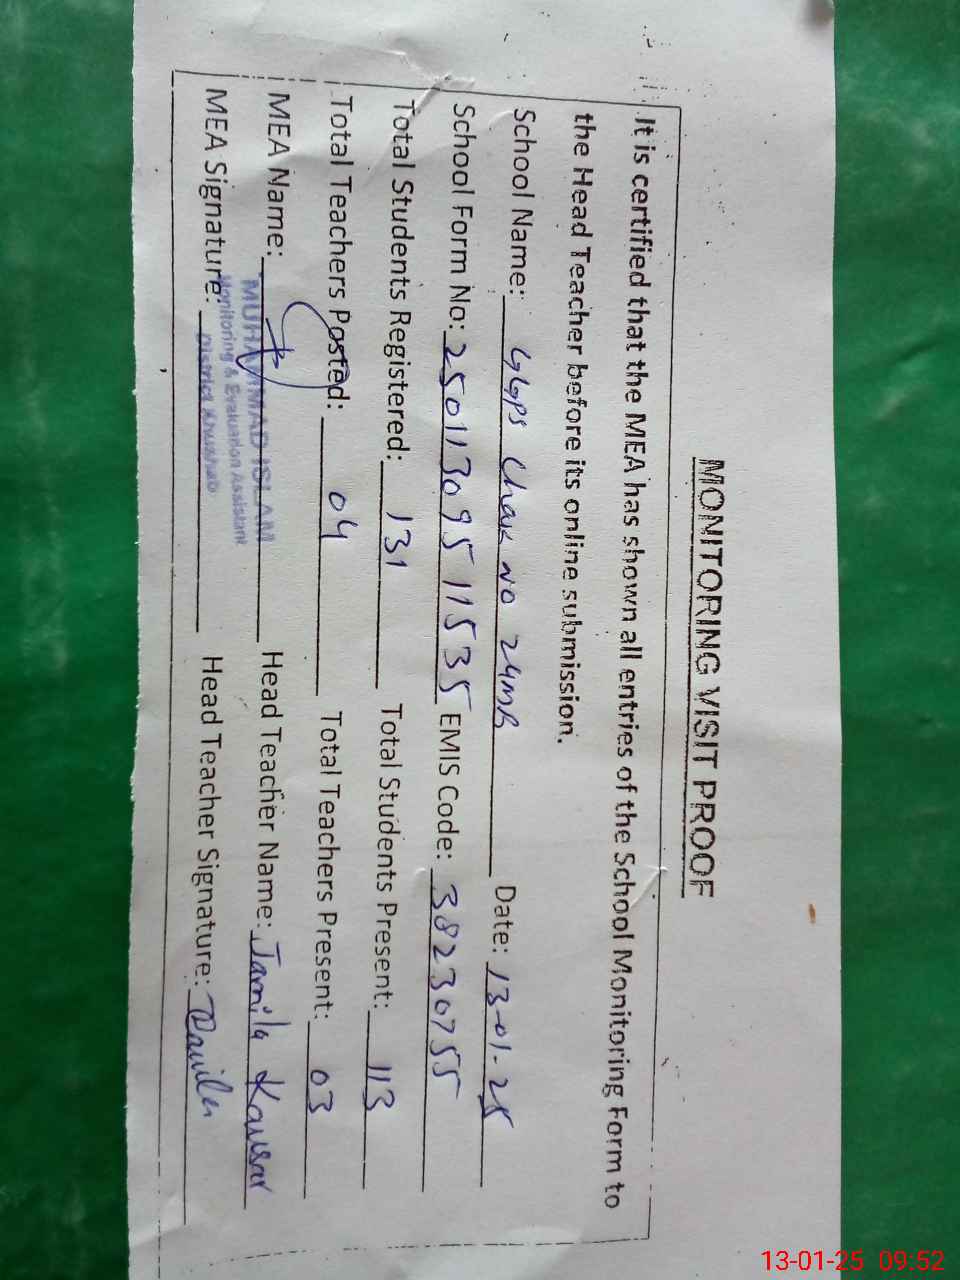 MONITORING VISIT PROOF
It is certified that the MEA has shown all entries of the School Monitoring Form to
the Head Teacher before its online submission.
School Name: GGPS Chak No 24MB Date: 13-01-25
School Form No: 25011309511535 EMIS Code: 38230755
Total Students Registered: 131 Total Students Present: 113
Total Teachers Posted: 04 Total Teachers Present: 03
MEA Name: MUHAMMAD ISLAM Head Teacher Name: Jamila Kausar
Monitoring & Evaluation Assistant
MEA Signature: District Khushab Head Teacher Signature: Jamila
13-01-25 09:52